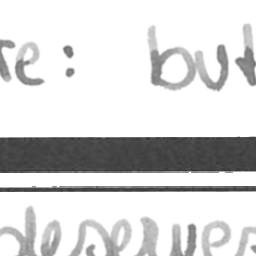 re: but
deserves